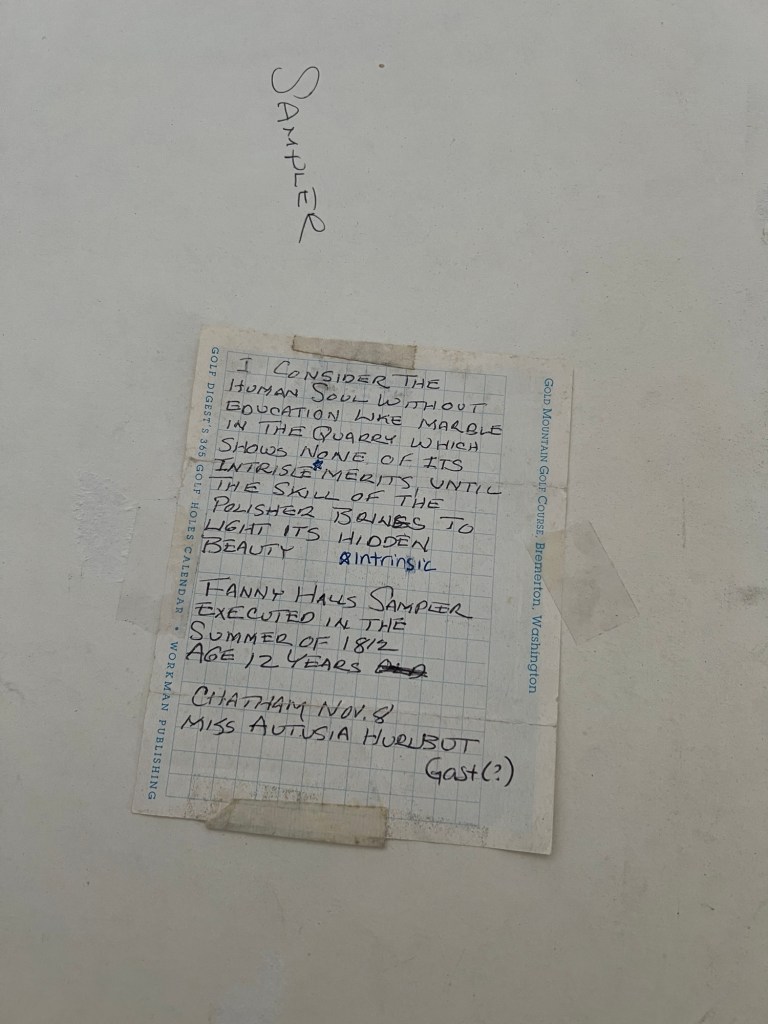 SAMPLER
I CONSIDER THE
HUMAN SOUL WITHOUT
EDUCATION LIKE MARBLE
IN THE QUARRY WHICH
SHOWS NONE OF ITS
INTRISIC* MERITS, UNTIL
THE SKILL OF THE
POLISHER BRINGS TO
LIGHT ITS HIDDEN
BEAUTY *Intrinsic
FANNY HALLS SAMPLER
EXECUTED IN THE
SUMMER OF 1812
AGE 12 YEARS
CHATHAM NOV. 8
MISS AUTUSIA HURLBUT
Gast(?)
GOLF DIGEST'S 365 GOLF HOLES CALENDAR • WORKMAN PUBLISHING
GOLD MOUNTAIN GOLF COURSE, Bremerton, Washington